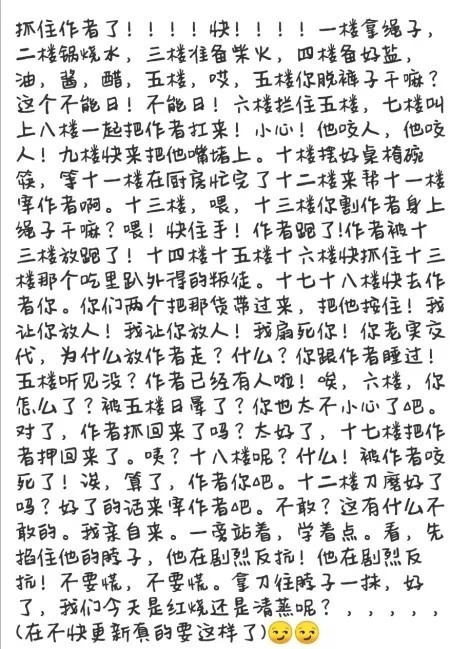 抓住作者了！！！！快！！！！一楼拿绳子，
二楼锅烧水，三楼准备柴火，四楼备好盐，
油，酱，醋，五楼，哎，五楼你脱裤子干嘛？
这个不能日！不能日！六楼拦住五楼，七楼叫
上八楼一起把作者扛来！小心！他咬人，他咬
人！九楼快来把他嘴堵上。十楼摆好桌椅碗
筷，等十一楼在厨房忙完了十二楼来帮十一楼
宰作者啊。十三楼，喂，十三楼你割作者身上
绳子干嘛？喂！快住手！作者跑了!作者被十
三楼放跑了！十四楼十五楼十六楼快抓住十三
楼那个吃里趴外得的叛徒。十七十八楼快去作
者你。你们两个把那货带过来，把他按住！我
让你放人！我让你放人！我扇死你！你老实交
代，为什么放作者走？什么？你跟作者睡过！
五楼听见没？作者已经有人啦！唉，六楼，你
怎么了？被五楼日晕了？你也太不小心了吧。
对了，作者抓回来了吗？太好了，十七楼把作
者押回来了。咦？十八楼呢？什么！被作者咬
死了！涘，算了，作者你吧。十二楼刀磨好了
吗？好了的话来宰作者吧。不敢？这有什么不
敢的。我亲自来。一旁站着，学着点。看，先
掐住他的脖子，他在剧烈反抗！他在剧烈反
抗！不要慌，不要慌。拿刀往脖子一抹，好
了，我们今天是红烧还是清蒸呢？，，，，，
(在不快更新真的要这样了)😏😏